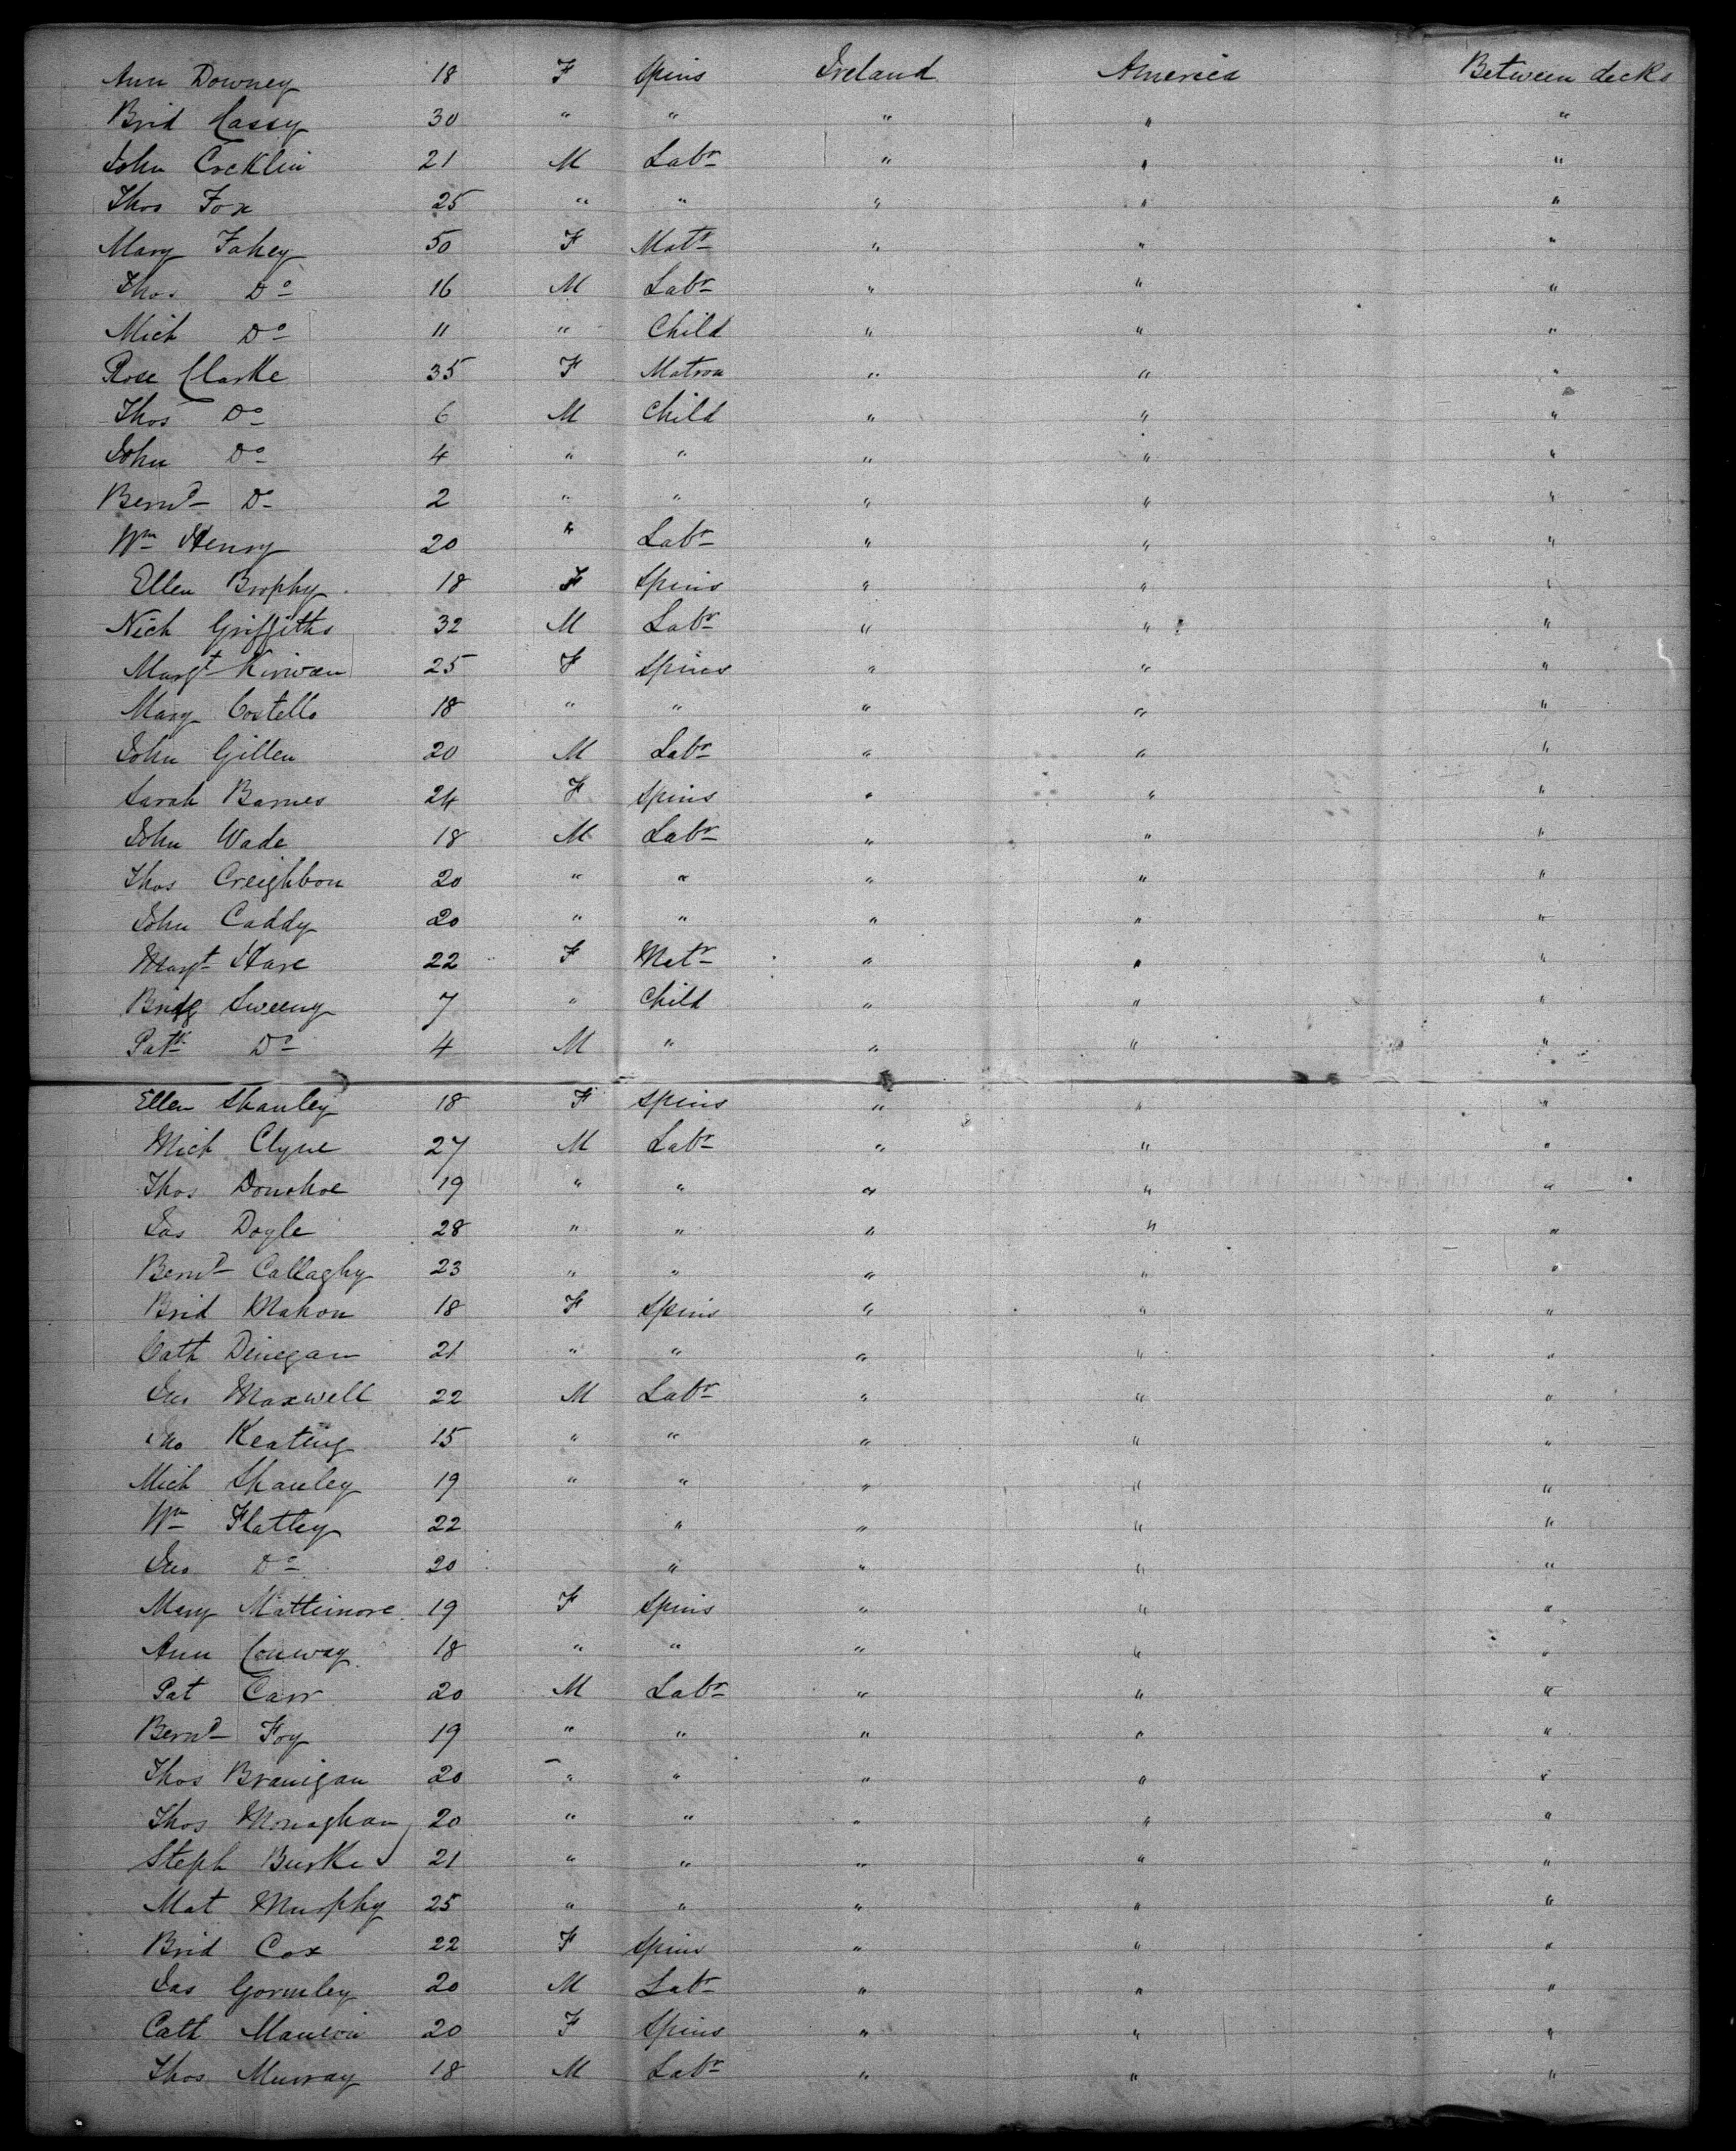 Ann Downey 18 F Spins Ireland America Between decks
Brid Hassy 30 " " " " "
John Cocklin 21 M Labr " " "
Thos Fox 25 " " " " "
Mary Fahey 50 F Matr " " "
Thos Do 16 M Labr " " "
Mich Do 11 " Child " " "
Rose Clarke 35 F Matron " " "
Thos Do 6 M Child " " "
John Do 4 " " " " "
Bernd Do 2 " " " " "
Wm Henry 20 " Labr " " "
Ellen Brophy 18 F Spins " " "
Nich Griffiths 32 M Labr " " "
Margt Kirwan 25 F Spins " " "
Mary Costello 18 " " " " "
John Gillen 20 M Labr " " "
Sarah Barnes 24 F Spins " " "
John Wade 18 M Labr " " "
Thos Creighton 20 " " " " "
John Caddy 20 " " " " "
Margt Hare 22 F Matr " " "
Bridg Sweeny 7 " Child " " "
Patk Do 4 M " " " "
Ellen Shanley 18 F Spins " " "
Mich Clyne 27 M Labr " " "
Thos Donohoe 19 " " " " "
Jas Doyle 28 " " " " "
Bernd Callaghy 23 " " " " "
Brid Mahon 18 F Spins " " "
Cath Dinegan 21 " " " " "
Jno Maxwell 22 M Labr " " "
Jno Keating 15 " " " " "
Mich Shanley 19 " " " " "
Wm Flatley 22 " " " "
Jno Do 20 " " " "
Mary Mattimore 19 F Spins " " "
Ann Conway 18 " " " " "
Pat Carr 20 M Labr " " "
Bernd Foy 19 " " " " "
Thos Branigan 20 " " " " "
Thos Monaghan 20 " " " " "
Steph Burke 21 " " " " "
Mat Murphy 25 " " " " "
Brid Cox 22 F Spins " " "
Jas Gormley 20 M Labr " " "
Cath 20 F Spins " " "
Thos Murray 18 M Labr " " "